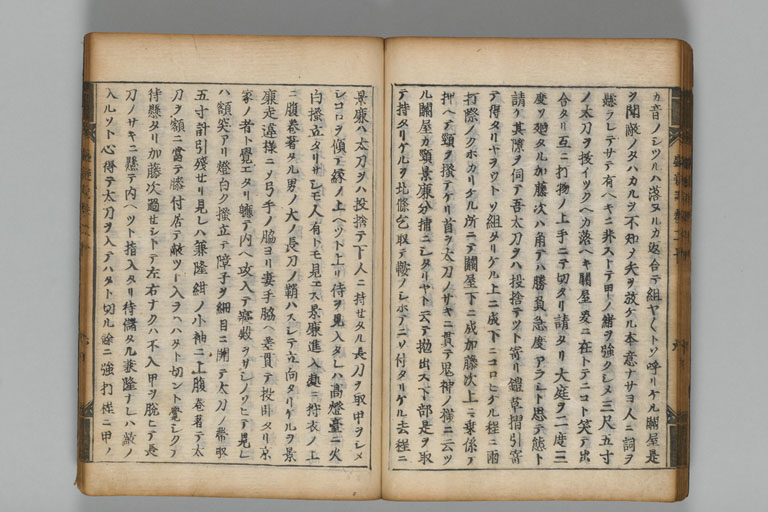 カ音ノシツルハ落ヌルカ返合テ組ヤ〱トソ呼リケル關屋是
ヲ聞敵ノタハカルヲ不知ノ矢ヲ放ケル本意ナサヨ人ニ詞ヲ
懸ラレテサテ有ヘキニ非ストテ甲ノ緒ヲ強クシメ三尺五寸
ノ太刀ヲ投イツクヘカ落ヘキ關屋爰ニ在トテニコト笑テ出
合タリ互ニ打物ノ上手ニテ切タリ請タリ大庭ヲ二度三
度ソ廻タル加藤次ハ角テハ勝負急度アラシト思テ態ト
請ケ其隙ヲ伺テ吾太刀ヲハ投捨テツト寄リ鎧草摺引寄
テ得タリヤヲウトソ組タリケル上ニ成下ニコロヒケル程ニ雨
打際ノクホカリケル所ニテ關屋下ニ成加藤次上ニ乗係テ
押ヘテ頸ヲ掻テケリ首ヲ太刀ノサキニ貫テ鬼神ノ様ニ云ツ
ル關屋カ頸景廉分捕ニシタリヤト云テ抛出ス下部是ヲ取
テ持タリケルヲ北條乞取テ鞍ノシホテニソ付タリケル去程ニ
景廉ハ太刀ヲハ投捨テ下人ニ持セタル長刀ヲ取甲ヲシメ
シコロヲ傾テ縁ノ上ヘツト上リ侍ヲ見入タレハ高燈臺ニ火
白掻立タリサレモ人有トモ見エス景廉進入処ニ狩衣ノ上
ニ腹巻著タル男ノ大ノ長刀ノ鞘ハスレテ立向タリケルヲ景
廉走違様ニソ弓手ノ脇ヨリ妻手脇ヘ差貫テ投臥タリ京
家ノ者ト覚エタリ軈テ内ヘ攻入テ
ハ額突アリ燈白ク掻立テ障子ヲ細目ニ開テ太刀ノ帯取
五寸計引残セリ見レハ兼隆紺ノ小袖ニ上腹巻著テ太
刀ヲ額ニ當テ膝付居テ敵ツト入ヲハハタト切ント覚シクテ
待懸タリ加藤次過セシトテ左右ナクハ不入甲ヲ脱ヒテ長
刀ノサキニ懸テ内ヘツト指入タリ待儲タル兼隆ナレハ敵ノ
入ルソト心得テ太刀ヲ入テハタト切ル餘ニ強打程ニ甲ノ